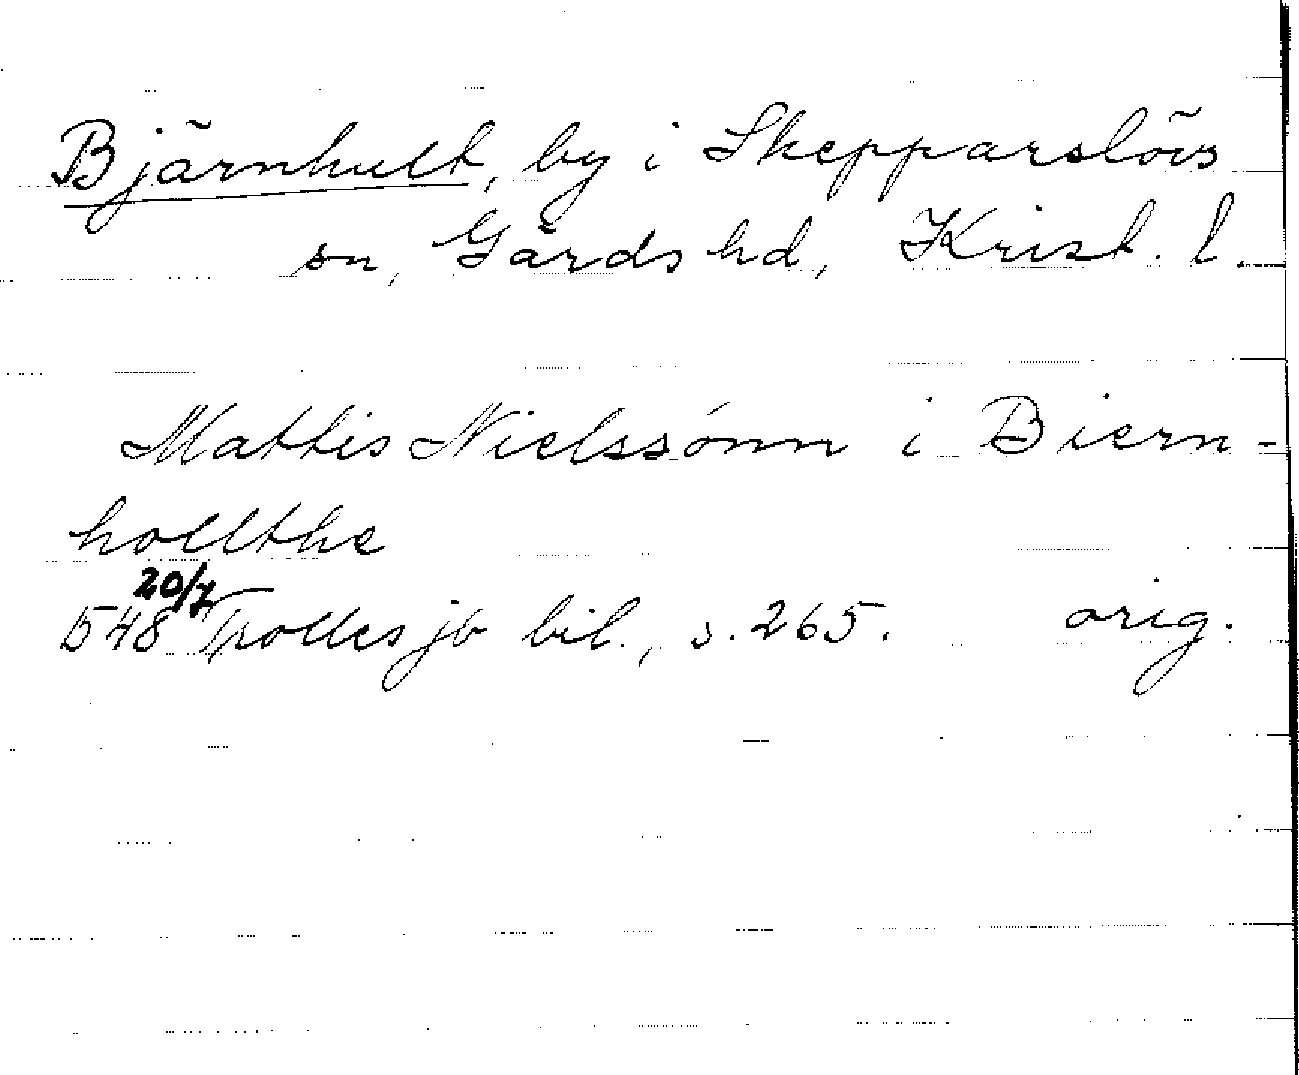 Bjärnhult, by i Skepparslövs
sn, Gärds hd, Krist. l.
Mattis Nielssønn i Biern-
hollthe
20/7
1548 Trolles jb bil., s. 265. orig.